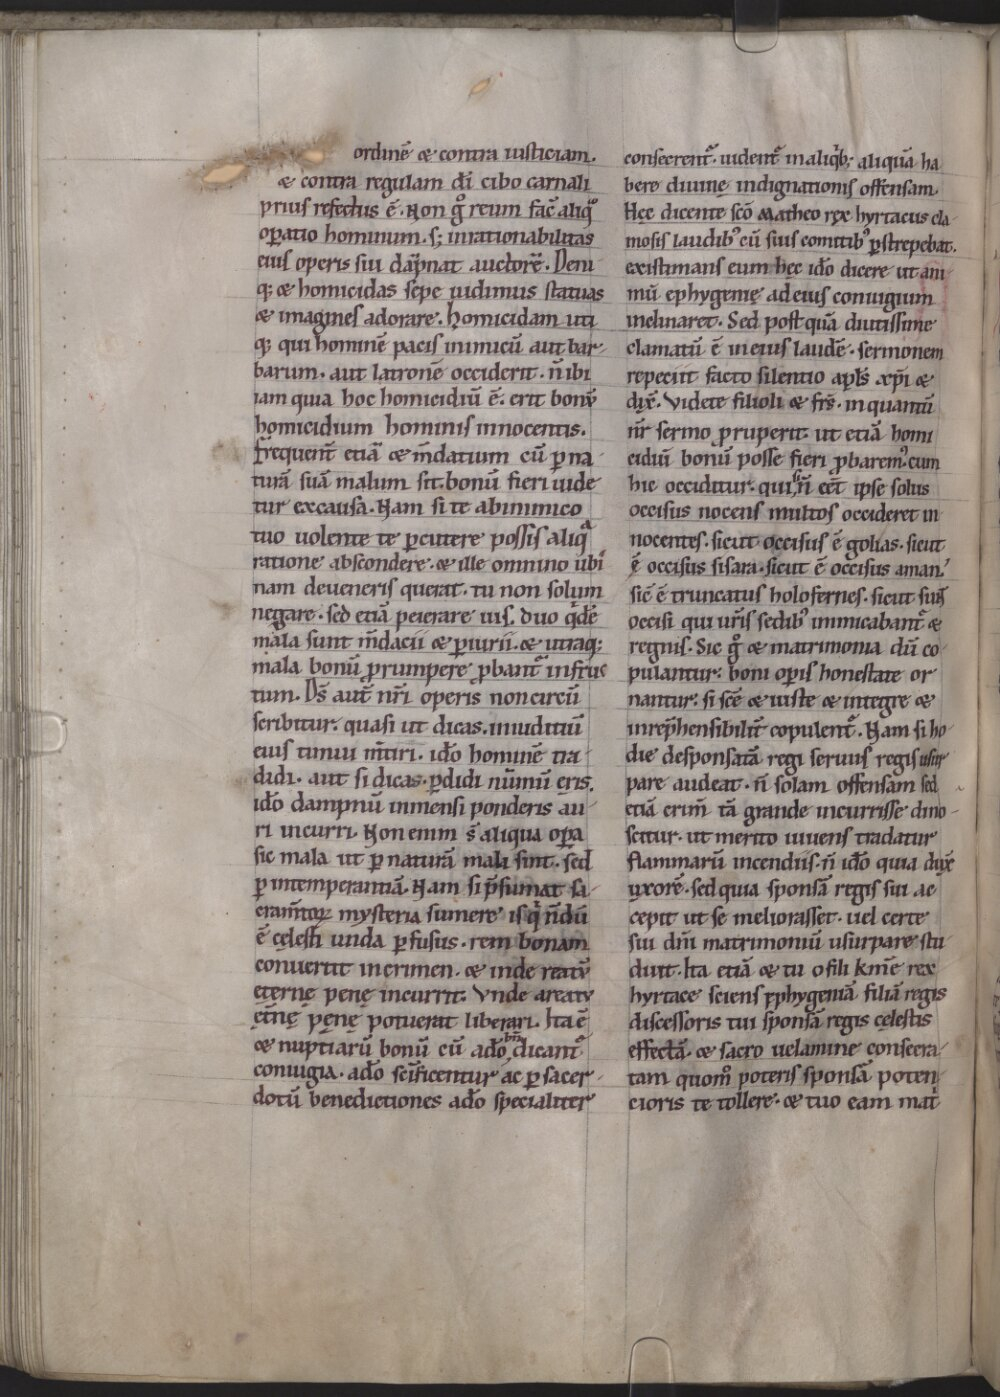 ordinē & contra iusticiam.
& contra regulam dī cibo carnali
prius refectus ē. Non gͦ reum fac̄ aliqͦ
oꝑatio hominum. s; inrationabilitas
eius operis sui dāpnat auctorē. Deni
q; & homicidas sepe uidimus statuas
& imagines adorare. homicidam uti
q; qui hominē pacis inimicū aut bar-
barum. aut latronē occiderit. n̄ ibi
iam quia hoc homicidiū ē. erit bonꝰ
homicidium hominis innocentis.
frequent̄ etiā & m̄datium cū ꝑ na-
turā suā malum sit. bonū fieri uide
tur ex causa. Nam si te ab inimico
tuo uolente te ꝑcutere possis aliqᵃ
ratione abscondere. & ille omnino ubi
nam deueneris querat. tu non solum
negare. sed etiā peierare uis. duo q̇dē
mala sunt m̄dacii & ꝑiurii. & utraq;
mala bonū ꝓrumpere ꝓbant᷑ in fruc
tum. Ds̄ aut̄ nr̄i operis non circū
scribitur. quasi ut dicas. inuditiū
eius timui m̄tiri. idō hominē tra-
didi. aut si dicas. ꝑdidi nūmū eris.
idō dampnū inmensi ponderis au-
ri incurri. Non enim s̄ aliqua opa
sic mala ut ꝑ naturā mali sint. sed
ꝑ intemperantiā. Nam si p̄sumat sa-
cram̄toꝝ mysteria sumere is q̇ n̄dū
ē cęlesti unda ꝑfusus. rem bonam
conuertit in crimen. & inde reatꝰ
ęternę penę incurrit. Vnde a reatu
ęt̄nę pęnę potuerat liberari. Ita ē
& nuptiarū bonū cū adō bn̄dicant᷑
coniugia. adō sc̄ificentur ac ꝑ sacer-
dotū benedictiones adō specialiter
consecrent᷑. uident᷑ in aliqͥb; aliquā ha
bere diuinę indignationis offensam.
Hęc dicente sc̄o Matheo rex hyrtacus cla-
mosis laudibꝰ cū suis comitibꝰ ꝑstrepebat.
existimans eum hęc idō dicere ut ani
mū ephygenię ad eius coniugium
inclinaret. Sed postquā diutissime
clamatū ē in eius laudē. sermonem
repeciit facto silentio apl̄s xp̄i &
dix̄. Videte filioli & frs̄. in quantū
nr̄ sermo ꝓruperit. ut etiā homi
cidiū bonū posse fieri ꝓbarem. cum
hic occiditur. qui si n̄ eēt ipse solus
occisus nocens multos occideret in
nocentes. sicut occisus ē golias. sicut
ē occisus sisara. sicut ē occisus aman.
sic̄ ē truncatus holofernes. sicut suīs
occisi qui ur̄is sedibꝰ inimicabant᷑ &
regnis. Sic gͦ & matrimonia dū co
pulantur. boni oꝑis honestate or
nantur. si sc̄e & iuste & integre &
inrep̄hensibilit̄ copulent᷑. Nam si ho
die desponsatā regi seruus regis usur
pare audeat. n̄ solam offensam sed
etiā crim̄ tā grande incurrisse dino-
scitur. ut merito uiuens tradatur
flammarū incendiis. n̄ idō quia dux̄
uxorē. sed quia sponsā regis sui ac
cepit ut se meliorasset. uel certe
sui dn̄i matrimoniū usurpare stu
duit. Ita etiā & tu o fili kmē rex
hyrtace sciens ephygeniā filiā regis
discessoris tui sponsā regis cęlestis
effectā. & sacro uelamine consecra-
tam quom̄ poteris sponsā poten-
cioris te tollere. & tuo eam mat̄